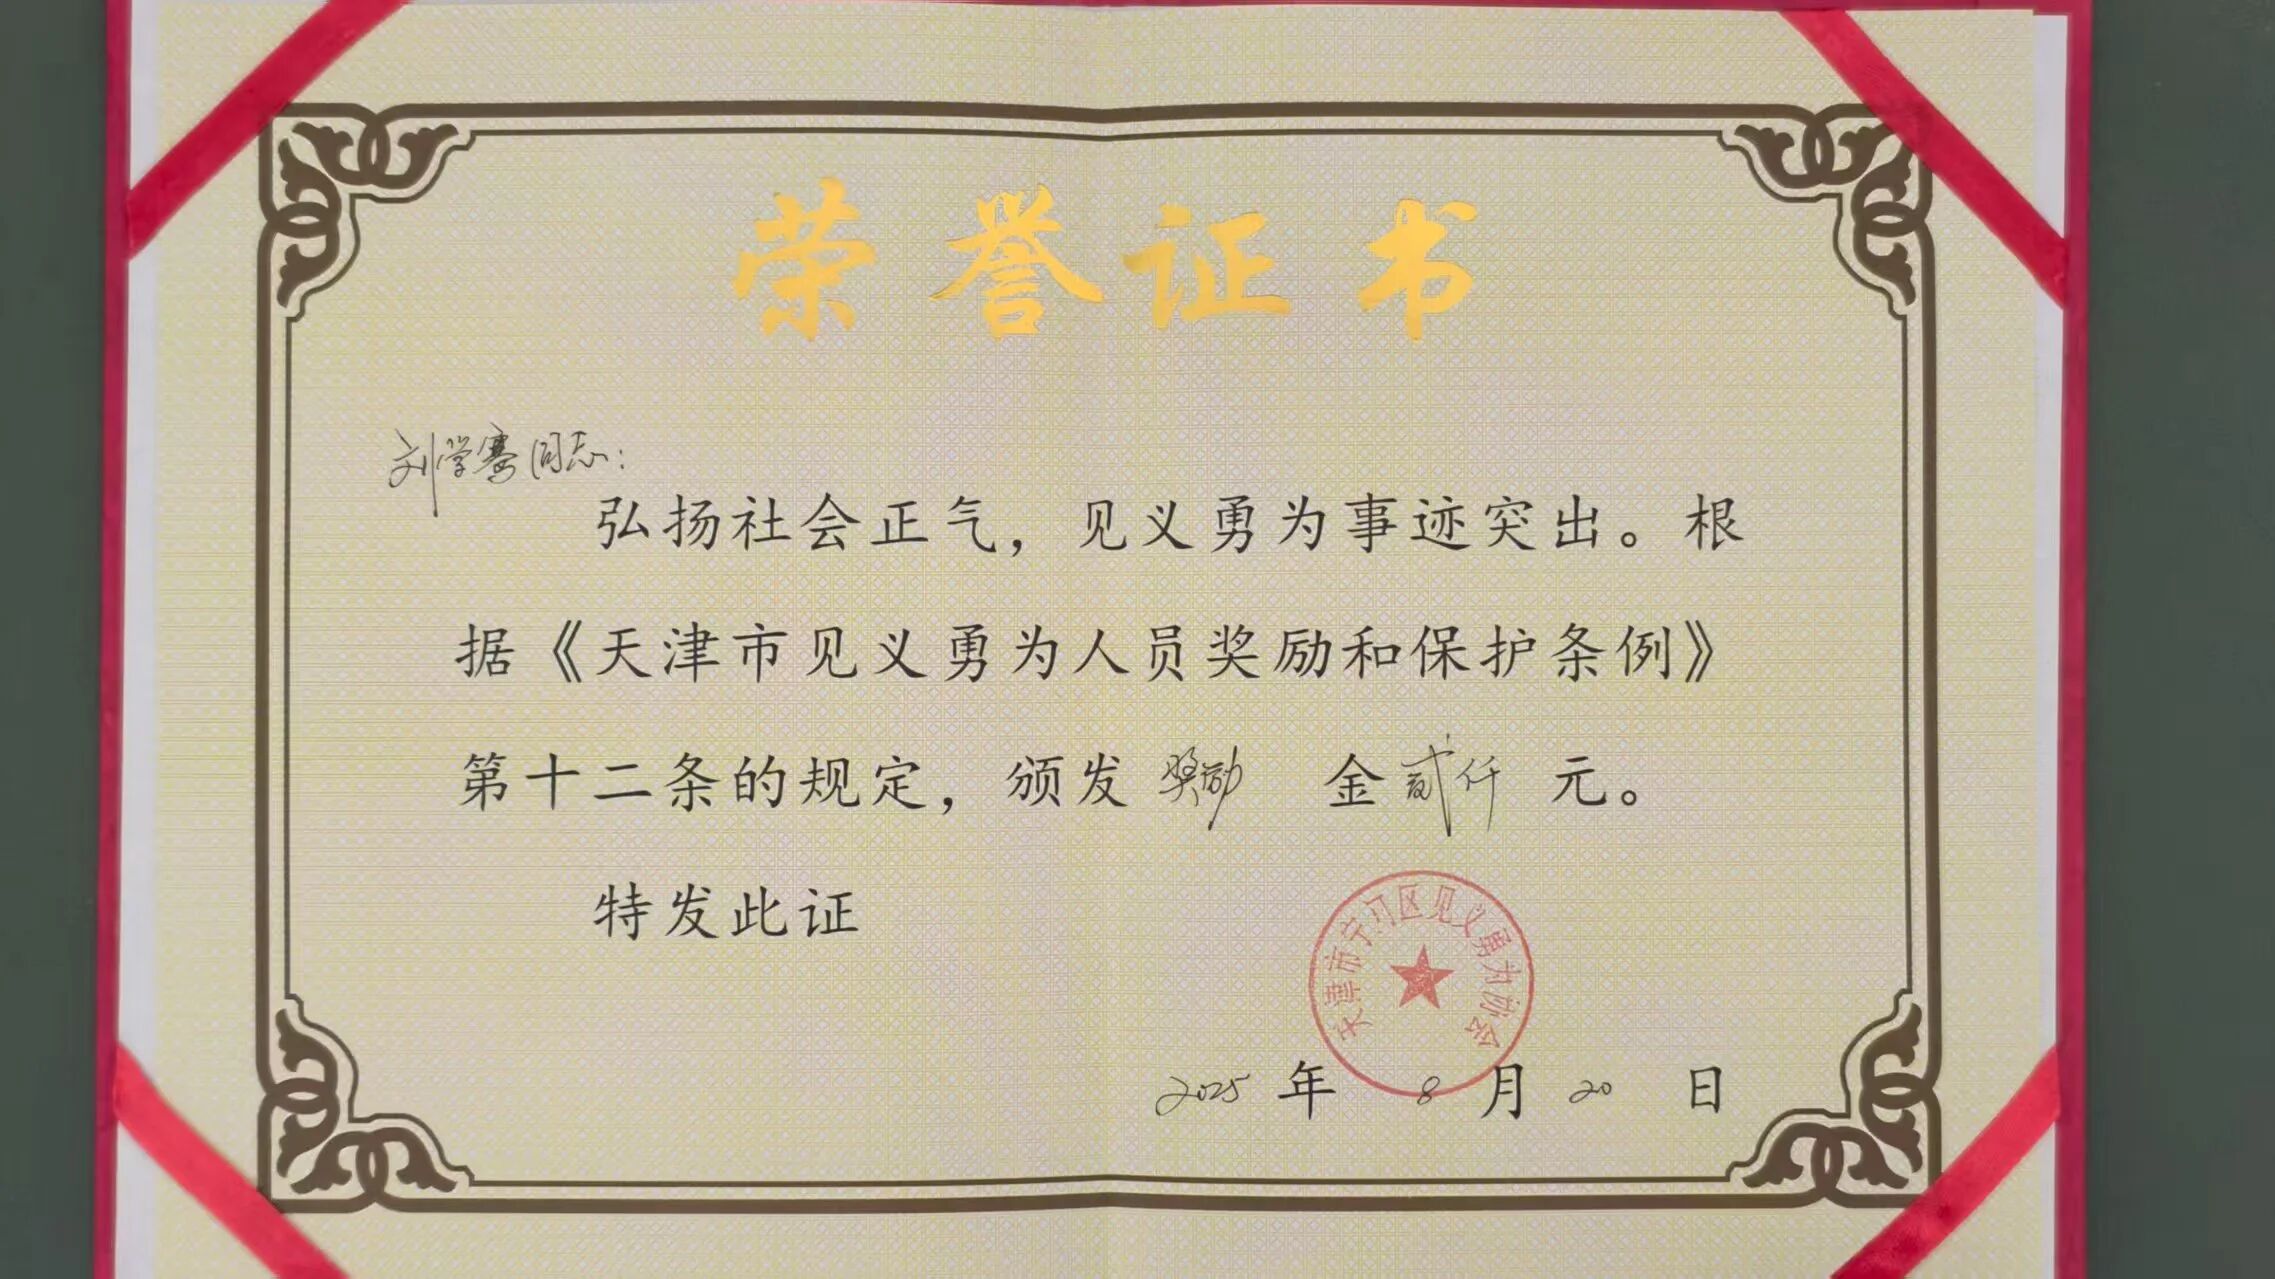 荣誉证书
刘学骞同志：
弘扬社会正气，见义勇为事迹突出。根
据《天津市见义勇为人员奖励和保护条例》
第十二条的规定，颁发奖励金贰仟元。
特发此证
天津市宁河区见义勇为协会
2025年8月20日